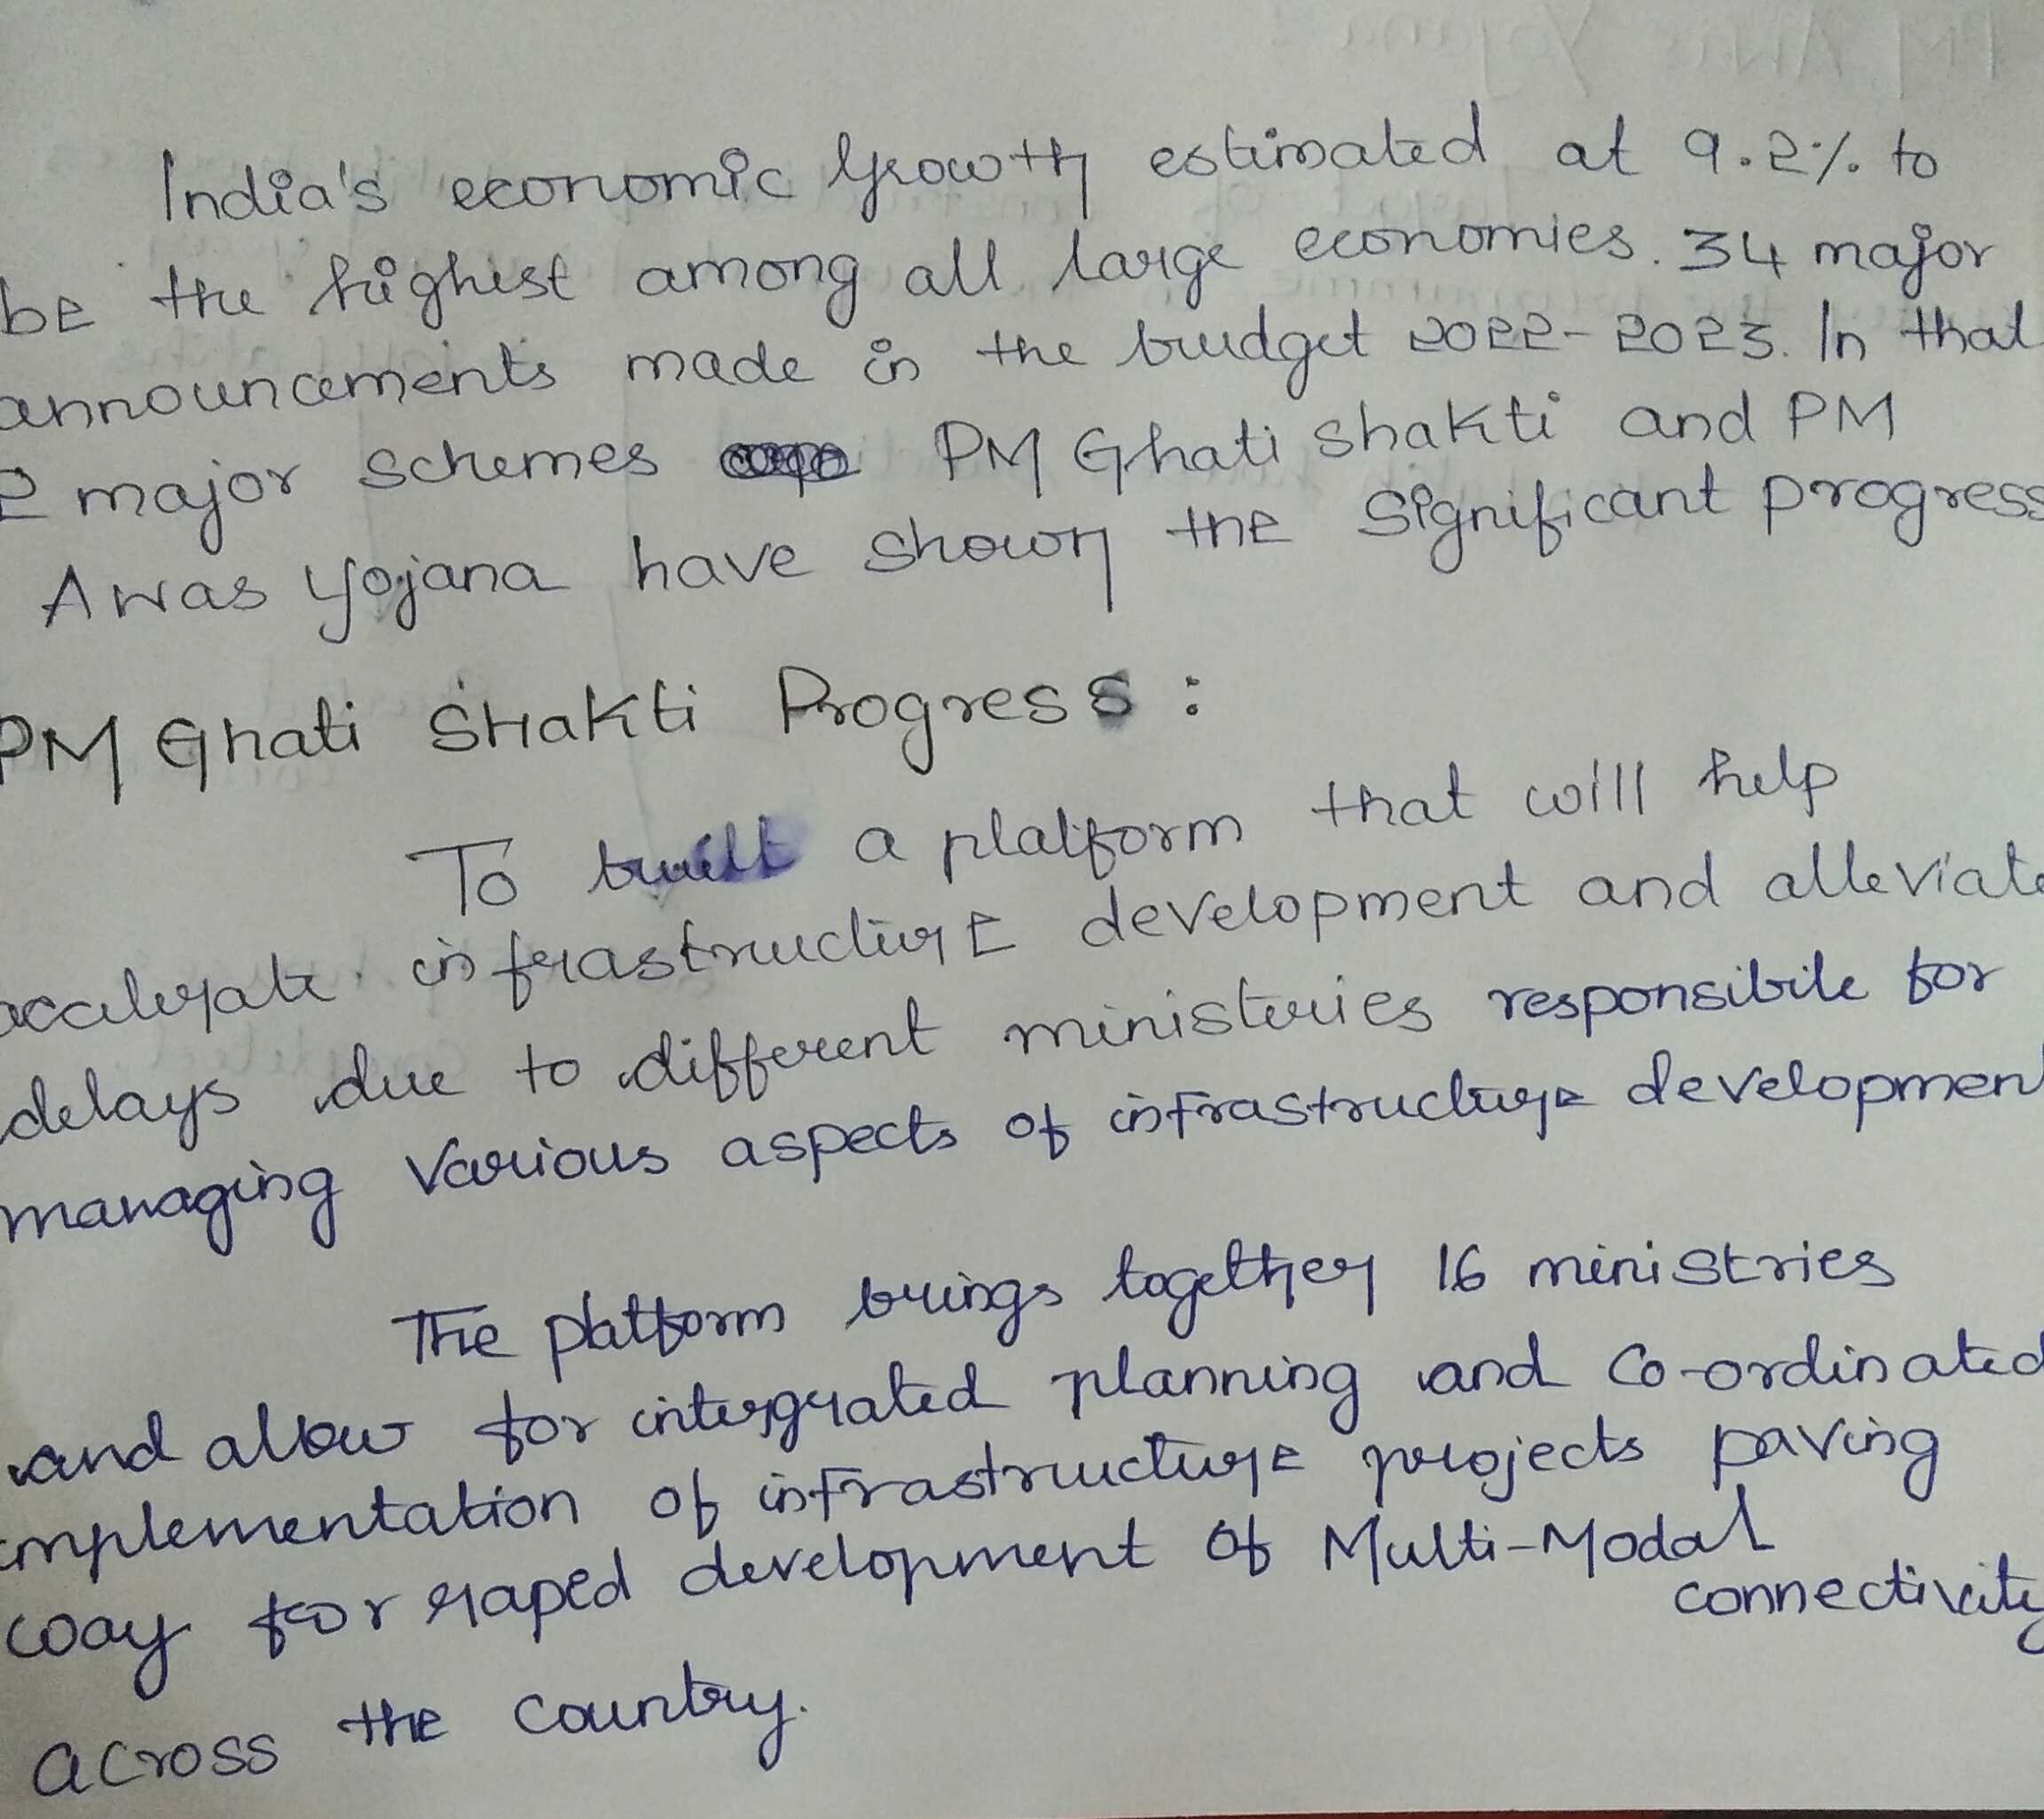 India's economic Growth estimated at 9.2% to
be the highest among all large economies. 34 major
announcements made in the budget 2022-2023. In that
2 major schemes PM Ghati Shakti and PM
Awas Yojana have shown the Significant progress
PM Ghati Shakti Progress :
To built a platform that will help
accelerate infrastructure development and alleviate
delays due to different ministeries responsibile for
managing Various aspects of infrastructure development
The platform brings together 16 ministries
and allow for intergrated planning and Co-ordinated
implementation of infrastructure projects paving
way for raped development of Multi-Modal
connectivity
across the Country.